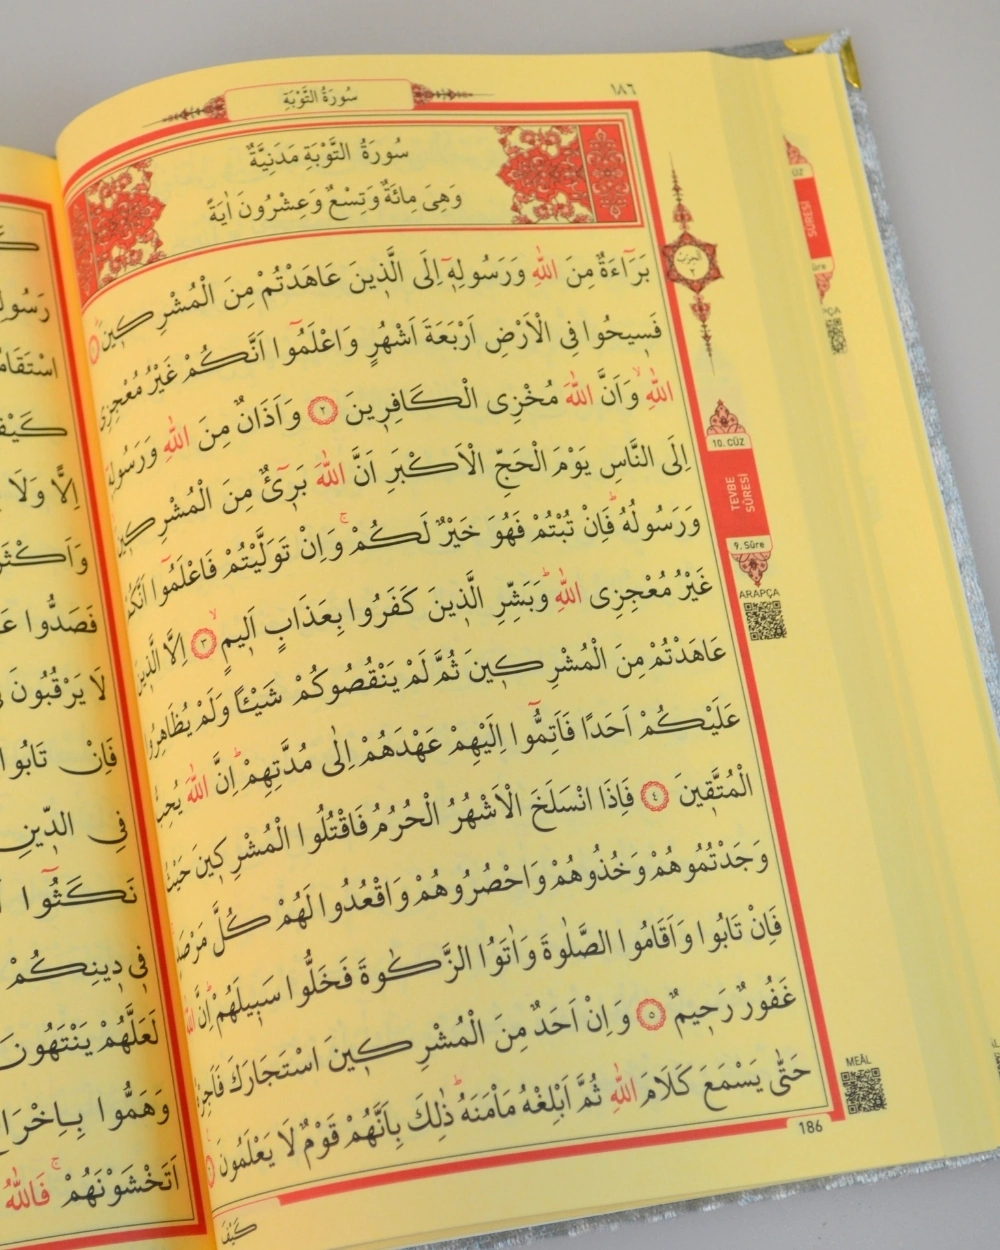 سُورَةُ التَّوْبَةِ
١٨٦
سُورَةُ التَّوْبَةِ مَدَنِيَّةٌ
وَهِىَ مِائَةٌ وَتِسْعٌ وَعِشْرُونَ اٰيَةً
بَرَآءَةٌ مِنَ اللّٰهِ وَرَسُولِهٖٓ اِلَى الَّذٖينَ عَاهَدْتُمْ مِنَ الْمُشْرِكٖينَ ١
فَسٖيحُوا فِى الْاَرْضِ اَرْبَعَةَ اَشْهُرٍ وَاعْلَمُٓوا اَنَّكُمْ غَيْرُ مُعْجِزِى
اللّٰهِۙ وَاَنَّ اللّٰهَ مُخْزِى الْكَافِرٖينَ ٢ وَاَذَانٌ مِنَ اللّٰهِ وَرَسُولِهٖٓ
اِلَى النَّاسِ يَوْمَ الْحَجِّ الْاَكْبَرِ اَنَّ اللّٰهَ بَرٖٓئٌ مِنَ الْمُشْرِكٖينَ
وَرَسُولُهُؕ فَاِنْ تُبْتُمْ فَهُوَ خَيْرٌ لَكُمْۚ وَاِنْ تَوَلَّيْتُمْ فَاعْلَمُٓوا اَنَّكُمْ
غَيْرُ مُعْجِزِى اللّٰهِؕ وَبَشِّرِ الَّذٖينَ كَفَرُوا بِعَذَابٍ اَلٖيمٍۙ ٣ اِلَّا الَّذٖينَ
عَاهَدْتُمْ مِنَ الْمُشْرِكٖينَ ثُمَّ لَمْ يَنْقُصُوكُمْ شَيْـًٔا وَلَمْ يُظَاهِرُوا
عَلَيْكُمْ اَحَدًا فَاَتِمُّٓوا اِلَيْهِمْ عَهْدَهُمْ اِلٰى مُدَّتِهِمْؕ اِنَّ اللّٰهَ يُحِبُّ
الْمُتَّقٖينَ ٤ فَاِذَا انْسَلَخَ الْاَشْهُرُ الْحُرُمُ فَاقْتُلُوا الْمُشْرِكٖينَ حَيْثُ
وَجَدْتُمُوهُمْ وَخُذُوهُمْ وَاحْصُرُوهُمْ وَاقْعُدُوا لَهُمْ كُلَّ مَرْصَدٍ
فَاِنْ تَابُوا وَاَقَامُوا الصَّلٰوةَ وَاٰتَوُا الزَّكٰوةَ فَخَلُّوا سَبٖيلَهُمْؕ اِنَّ اللّٰهَ
غَفُورٌ رَحٖيمٌ ٥ وَاِنْ اَحَدٌ مِنَ الْمُشْرِكٖينَ اسْتَجَارَكَ فَاَجِرْهُ
حَتّٰى يَسْمَعَ كَلَامَ اللّٰهِ ثُمَّ اَبْلِغْهُ مَاْمَنَهُؕ ذٰلِكَ بِاَنَّهُمْ قَوْمٌ لَا يَعْلَمُونَ
كَيْفَ
186
10. CÜZ
TEVBE
SÛRESİ
9. Sûre
ARAPÇA
MEÂL
SÛRESİ
اسْتَقَامُ
كَيْفَ
اِلًّا وَلَا
فَصَدُّوا
لَا يَرْقُبُونَ
فَاِنْ تَابُوا
فِى الدّٖينِ
نَكَثُٓوا
فٖى دٖينِكُمْ
لَعَلَّهُمْ يَنْتَهُونَ
وَهَمُّوا بِاِخْرَا
اَتَخْشَوْنَهُمْۚ فَاللّٰهُ